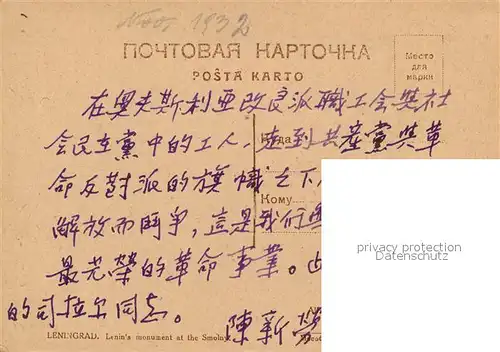 Nov. 1932
ПОЧТОВАЯ КАРТОЧКА
POŜTA KARTO
Место
для
марки
在奧夫斯利亚改良派職工会與社
会民主黨中的工人,走到共產黨與革
Куда
命反對派的旗幟之下
Кому
解放而鬥爭,這是我们
privacy protection
AKpool.de
最光榮的革命事業。
的司拉尔同志。
陳新
LENINGRAD. Lenin's monument at the Smolny